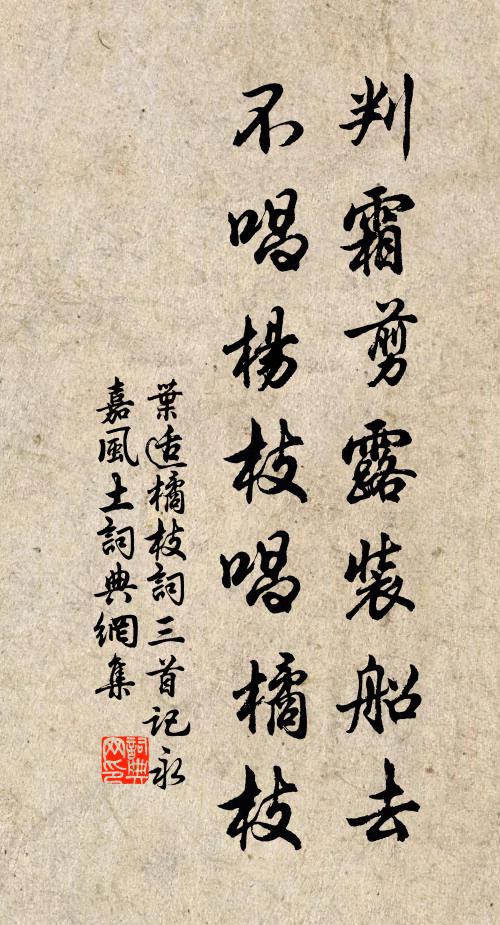 判霜剪露裝船去
不唱楊枝唱橘枝
葉適橘枝詞三首記永
嘉風土詞典網集
詞典
网印